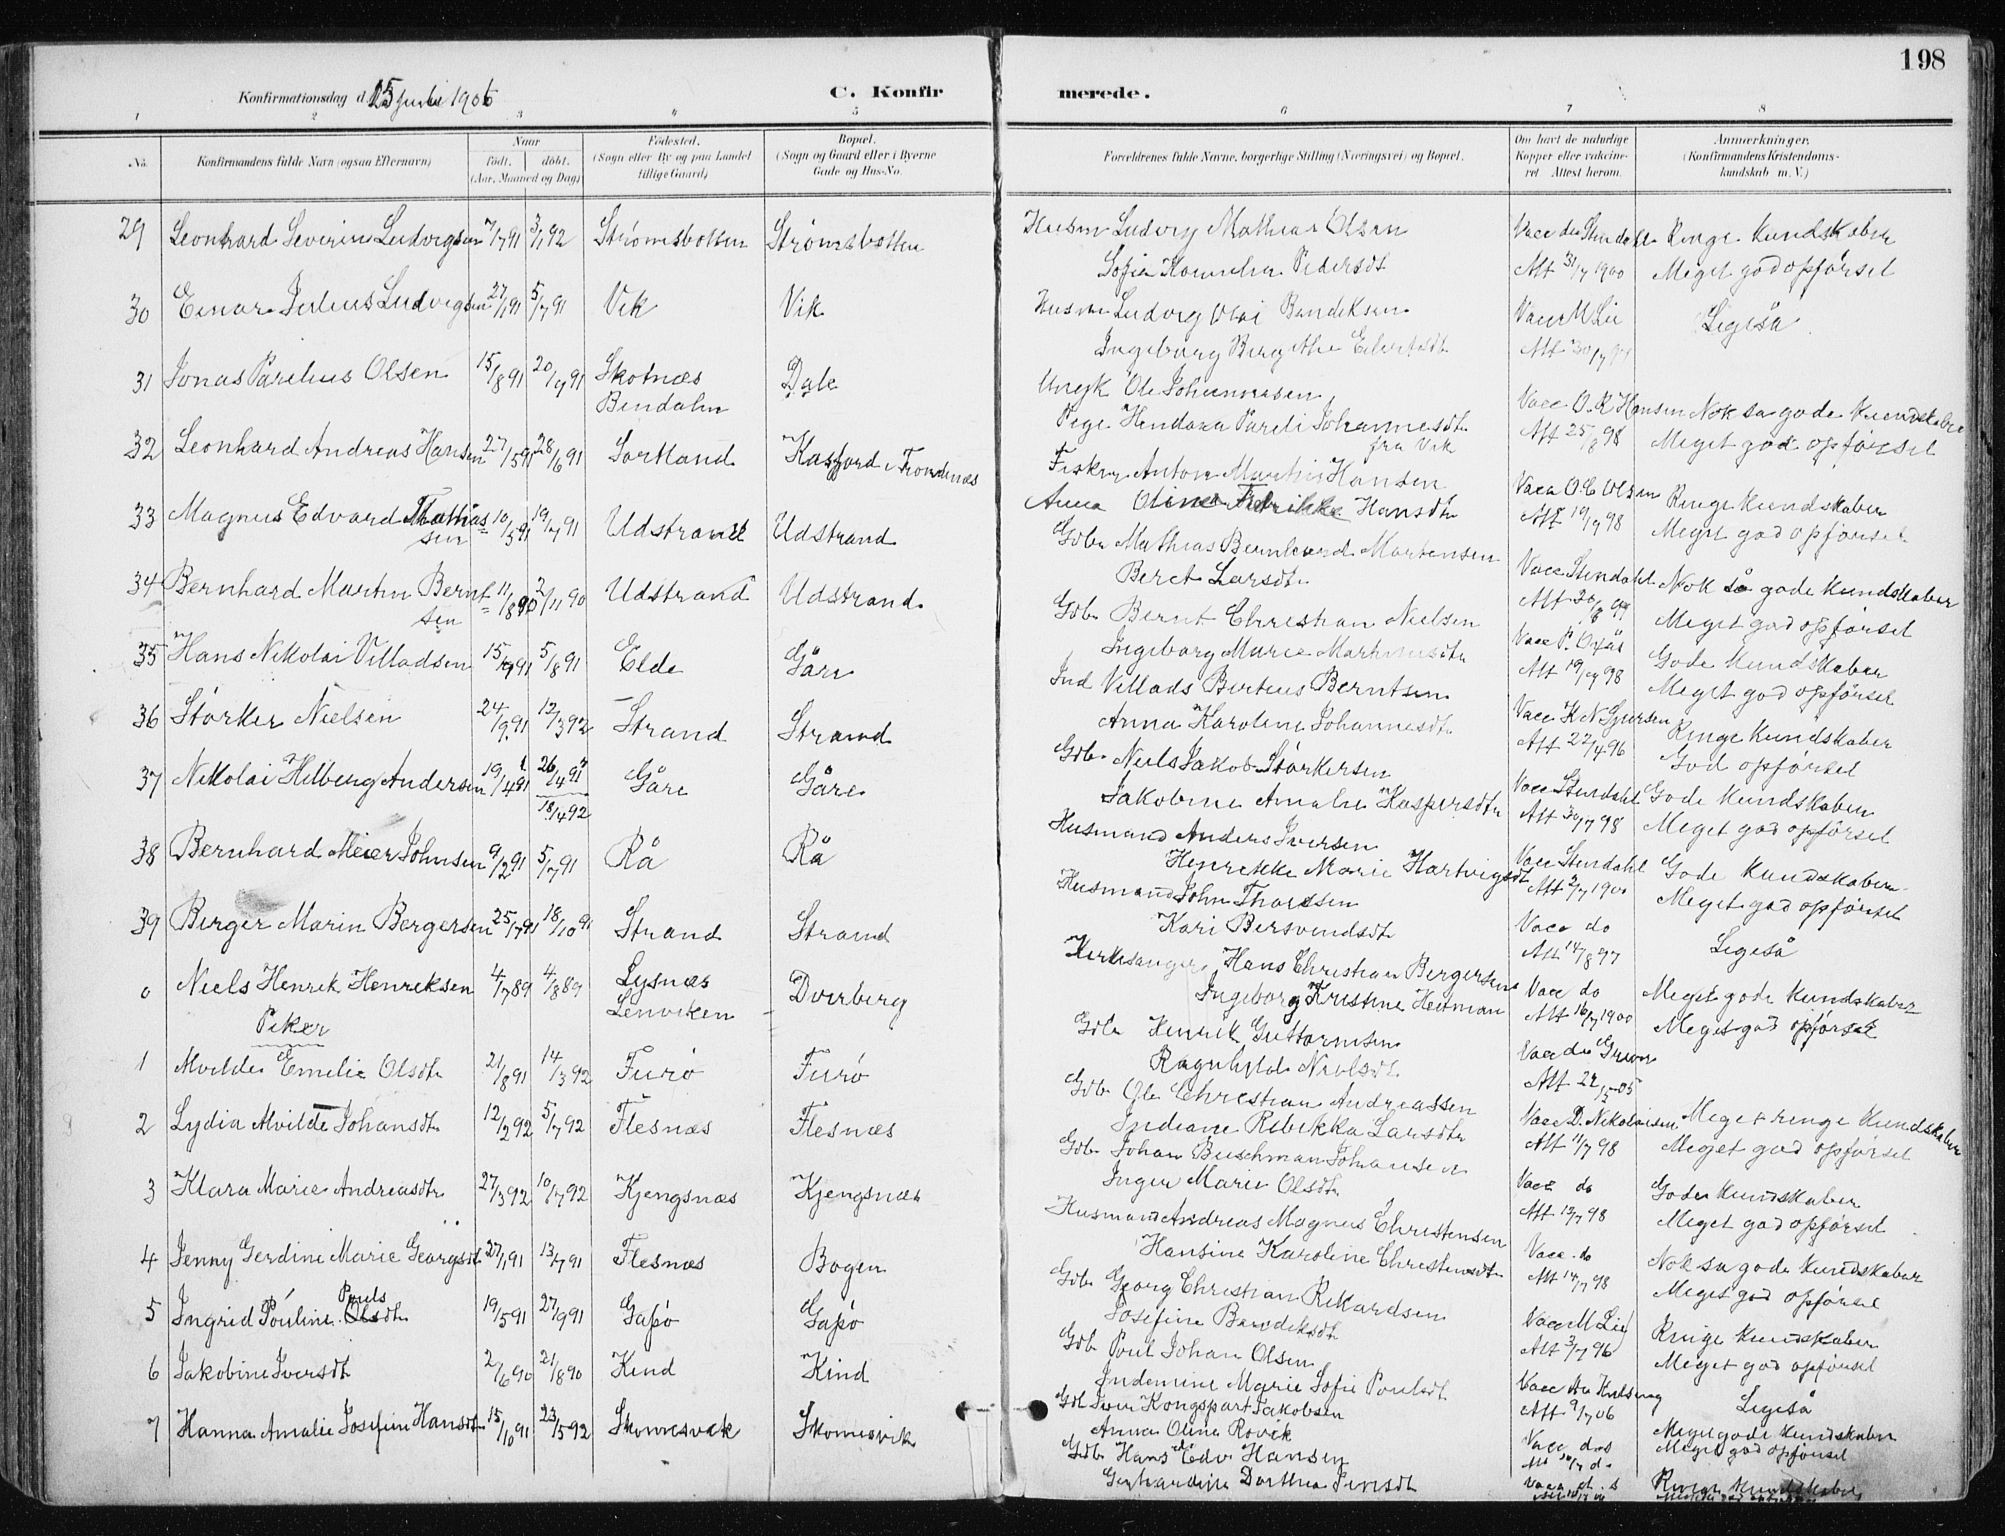 198
Konfirmationsdag d. 15 juli 1906
C. Konfirmerede.
1 2 3 4 5 6 7 8
No.
Konfirmandens fulde Navn (ogsaa Efternavn)
Naar
født. døbt.
(Aar, Maaned og Dag)
Fødested.
(Sogn eller By og paa Landet
tillige Gaard)
Bopæl.
(Sogn og Gaard eller i Byerne
Gade og Hus-No.
Forældrenes fulde Navne, borgerlige Stilling (Næringsvei) og Bopæl.
Om havt de naturlige
Kopper eller vakcine-
ret Attest herom.
Anmærkninger.
(Konfirmandens Kristendoms-
kundskab m. V.)
29 Leonhard Severin Ludvigsen 7/7 91 3/1 92 Strømsbotten Strømsbotten
Husm Ludvig Mathias Olsen Vacc Stendahl Ringe Kundskaber
Sofie Pedersdt Att 31/7 1900 Meget god opførsel
30 Einar Julius Ludvigsen 27/1 91 5/7 91 Vik Vik
Husm Ludvig Olai Bendiksen Vacc M Lie Ligeså
Ingeborg Birgithe Att 30/7
31 Jonas Parelius Olsen 15/8 91 20/9 91 Skotnæs Dale
Bindalen
Ungk Ole Johannesen Vacc O. R Hansen Nok sa gode Kundskaber
Pige Pareli Johannesdt Att 25/8 98 Meget god opførsel
fra Vik
32 Leonhard Andreas Hansen 27/5 91 28/6 91 Sortland Kasfjord i Trondenæs
Fisker Anton Martin Hansen Vacc O. C Olsen Ringe Kundskaber
Anna Oline Fedrikke Hansdt Att 19/9 98 Meget god opførsel
33 Magnus Edvard Mathias= 10/5 91 19/7 91 Udstrand Udstrand
sen
Gdbr Mathias Bernhard Martensen Vacc Stendahl Nok så gode Kundskaber
Beret Larsdt Att 20/8 99 Meget god opførsel
34 Bernhard Martin Bernt= 11/8 90 2/11 90 Udstrand Udstrand
sen
Gdb Bernt Christian Nielsen Vacc P. Oxås Gode Kundskaber
Ingeborg Marie Martinusdt Att 19/9 98 Meget god opførsel
35 Hans Nikolai Villadsen 15/4 91 5/8 91 Elde Gåre
Ind Villads Berteus Berntsen Vacc K N Gjersen Ringe Kundskaber
Anna Karoline Johannesdt Att 22/4 96 God opførsel
36 Størker Nielsen 24/9 91 12/3 92 Strand Strand
Gdb Niels Jakob Størkersen Vacc Stendahl Gode Kundskaber
Jakobine Amalie Kaspersdt Att 30/7 98 Meget god opførsel
37 Nikolai Hilberg Andersen 19/4 91 26/4 91 Gåre Gåre
18/4 92
Husmand Anders Iversen Vacc Stendahl Gode Kundskaber
Henrikke Marie Hartvigsdt Att 2/7 1900 Meget god opførsel
38 Bernhard Meier Johnsen 9/2 91 5/7 91 Rå Rå
Husmand John Thoresen Vacc do Ligeså
Kari Bersvendsdt Att 14/8 97
39 Birger Marin Bergersen 25/7 91 18/10 91 Strand Strand
Kirkesanger Hans Christian Bergersen Vacc do Meget gode Kundskaber
Ingeborg Kristine Heitman Att 16/7 1900 Meget god opførsel
0 Niels Henrik Henriksen 4/7 89 4/8 89 Lysnæs Dverberg
Lenviken
Gdb Henrik Guttormsen Vacc
Ragnhild Nielsdt Att 22/5-05
Piker
1 Alvilde Emelie Olsdt 21/8 91 14/3 92 Furø Furø
Gdb Ole Christian Andreassen Vacc D. Nikolaisen Meget ringe Kundskaber
Indiane Rebekka Larsdt Att 11/7 98 Meget god opførsel
2 Lydia Alvilde Johansdt 12/2 92 5/7 92 Flesnæs Flesnæs
Gdb Johan Buschman Johansen Vacc do Gode Kundskaber
Inger Marie Olsdt Att 12/7 98 Meget god opførsel
3 Klara Marie Andreasdtr 27/3 92 10/7 92 Kjengsnæs Kjengsnæs
Husmand Andreas Magnus Christensen Vacc do Nok sa gode Kundskaber
Hansine Karoline Christensdt Att 14/7 98 Meget god opførsel
4 Jenny Gerdine Marie Georgsdt 27/1 91 13/7 91 Flesnæs Bogen
Gdb Georg Christian Rikardsen Vacc M Lie Ringe Kundskaber
Josefine Bendiksdt Att 3/7 96 Meget god opførsel
Pouls
5 Ingrid Pouline Olsdt 19/5 91 27/9 91 Gapø Gapø
Gdb Poul Johan Olsen Vacc Ligeså
Indemine Marie Sofie Poulsdt Att 9/7 06
6 Jakobine Iversdt 2/6 90 21/8 90 Kind Kind
Gdb Iver Kongspart Jakobsen Vacc Meget gode Kundskaber
Anna Olina Rovik Meget god opførsel
7 Hanna Amalie Josefine Hansdt 15/10 91 22/5 92 Skomesvik Skomesvik
Gdb Hans Edv Hansen Vacc Ringe Kundskaber
Gerhardine Dorthea Jensdt